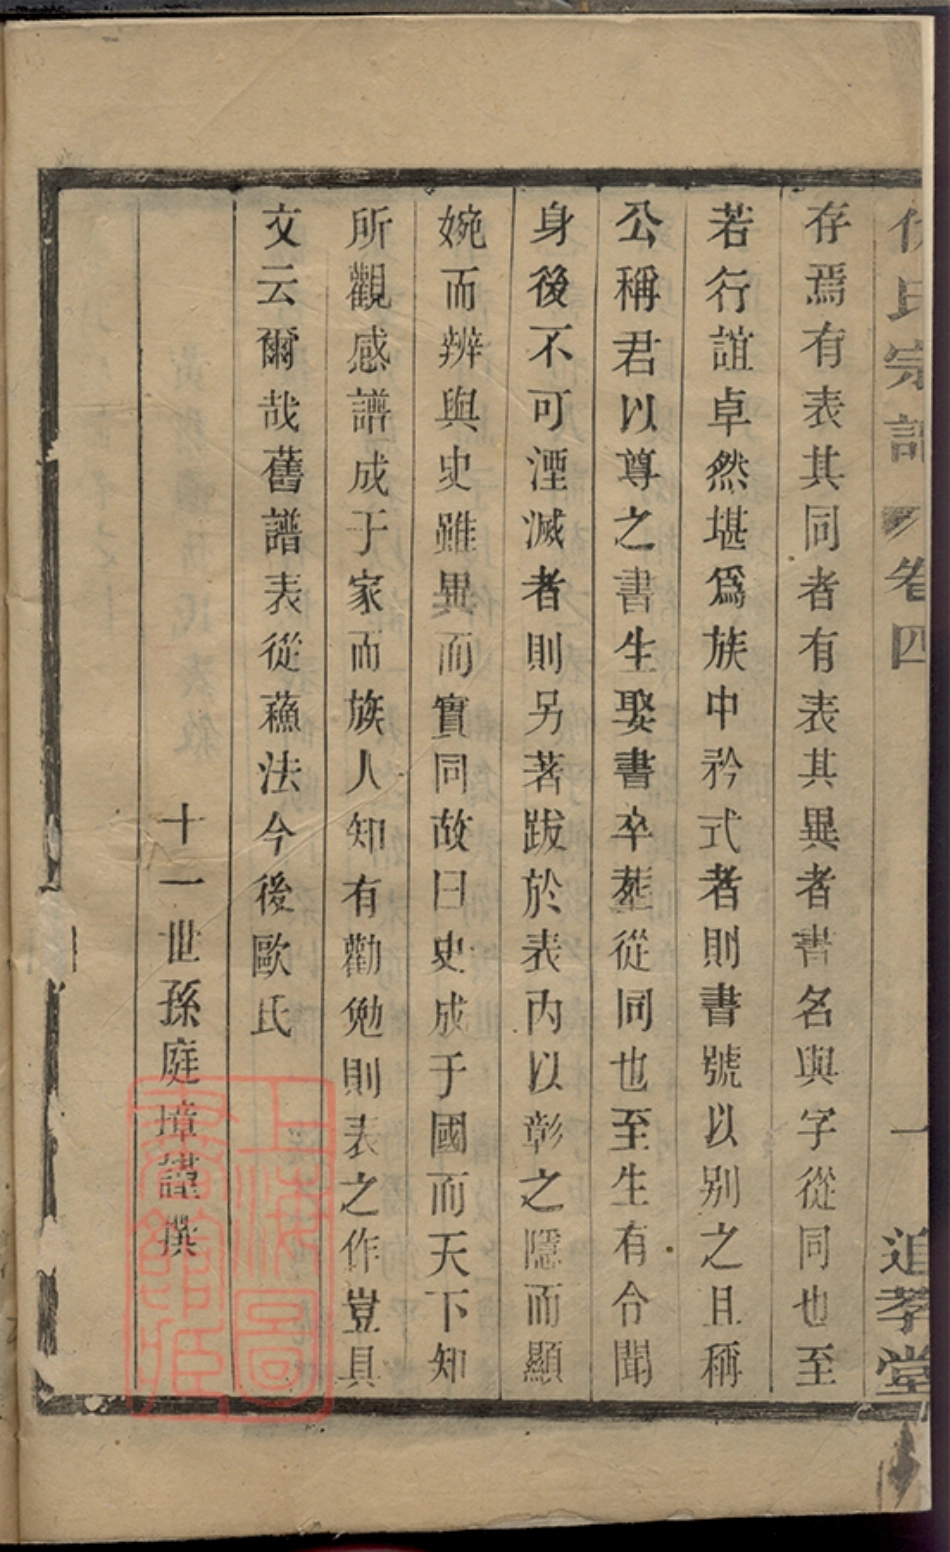 氏宗譜 卷四 一 追孝堂
存焉有表其同者有表其異者書名與字從同也至
若行誼卓然堪爲族中矜式者則書號以别之且稱
公稱君以尊之書生娶書卒塟從同也至生有令聞
身後不可湮滅者則另著跋於表內以彰之隱而顯
婉而辨與史雖異而實同故曰史成于國而天下知
所觀感譜成于家而族人知有勸勉則表之作豈具
文云爾哉舊譜表從蘓法今後歐氏
十一世孫庭璋謹撰
上海圖書館藏